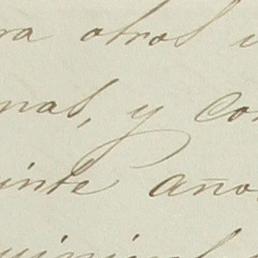 ra otros
nas, y co
inte año